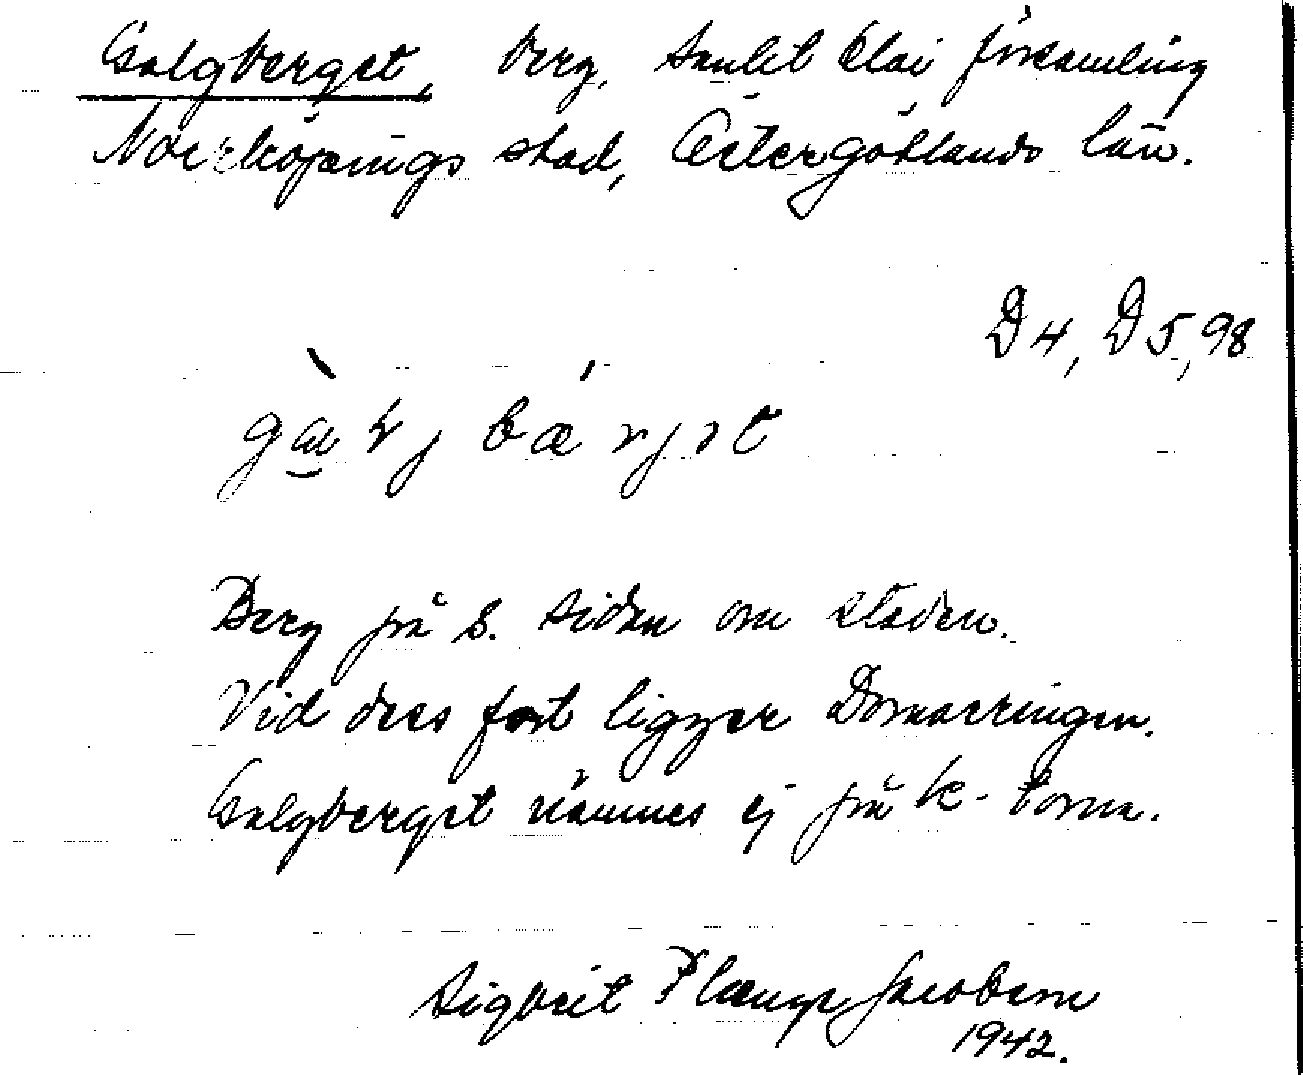 Galgberget, berg, Sankt Olai församling
Norrköpings stad, Östergötlands län.
D4, D5, 98
Berg på s. sidan om staden.
Vid dess fot ligger Domarringen.
Galgberget nämnes ej på k-torna.
Sigbrit Plænge Jacobson
1942.